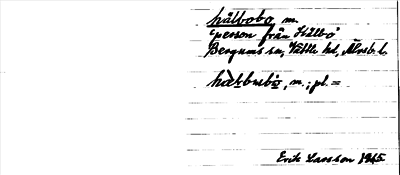 hålbobo m.
"person från Hålbo"
Bergums sn, Vättle hd, Älvsb. l.
hàrbωbò, m.; pl. =
Erik Larsson 1965